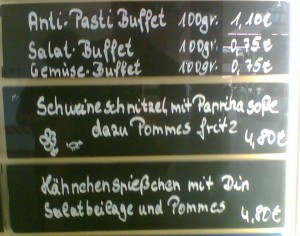 Anti-Pasti Buffet 100gr. 1,10€
Salat-Buffet 100gr. 0,75€
Gemüse-Buffet 100gr. 0,75€
Schweineschnitzel mit Paprikasoße
dazu Pommes fritz 4,80€
Hähnchenspießchen mit Dip
Salatbeilage und Pommes 4,80€